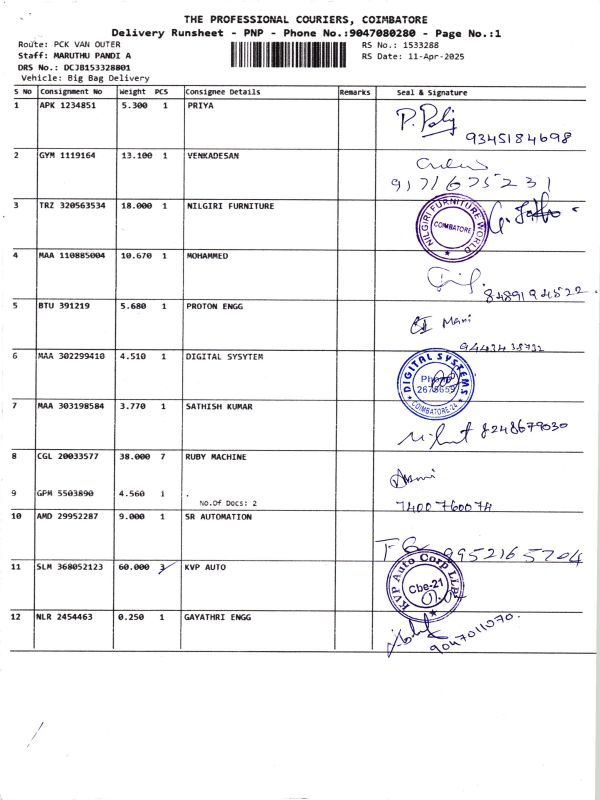 THE PROFESSIONAL COURIERS, COIMBATORE
Delivery Runsheet - PNP - Phone No.:9047080280 - Page No.:1
Route: PCK VAN OUTER RS No.: 1533288
Staff: MARUTHU PANDI A RS Date: 11-Apr-2025
DRS No.: DCJB153328801
Vehicle: Big Bag Delivery
S NO Consignment No Weight PCS Consignee Details Remarks Seal & Signature
1 APK 1234851 5.300 1 PRIYA
9345184698
2 GYM 1119164 13.100 1 VENKADESAN
9171675231
3 TRZ 320563534 18.000 1 NILGIRI FURNITURE
NILGIRI FURNITURE WORLD
COIMBATORE
4 MAA 110885004 10.670 1 MOHAMMED
8489194522
5 BTU 391219 5.680 1 PROTON ENGG
Mani
6 MAA 302299410 4.510 1 DIGITAL SYSYTEM
DIGITAL SYSTEMS
COIMBATORE-24
7 MAA 303198584 3.770 1 SATHISH KUMAR
8248679030
8 CGL 20033577 38.000 7 RUBY MACHINE
9 GPM 5503890 4.560 1 .
No.Of Docs: 2
7400760074
10 AMD 29952287 9.000 1 SR AUTOMATION
9952165704
11 SLM 368052123 60.000 3 KVP AUTO
KVP Auto Corp LLP
Cbe-21
12 NLR 2454463 0.250 1 GAYATHRI ENGG
9047011070.